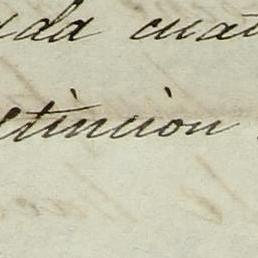 uda cuat
stincion